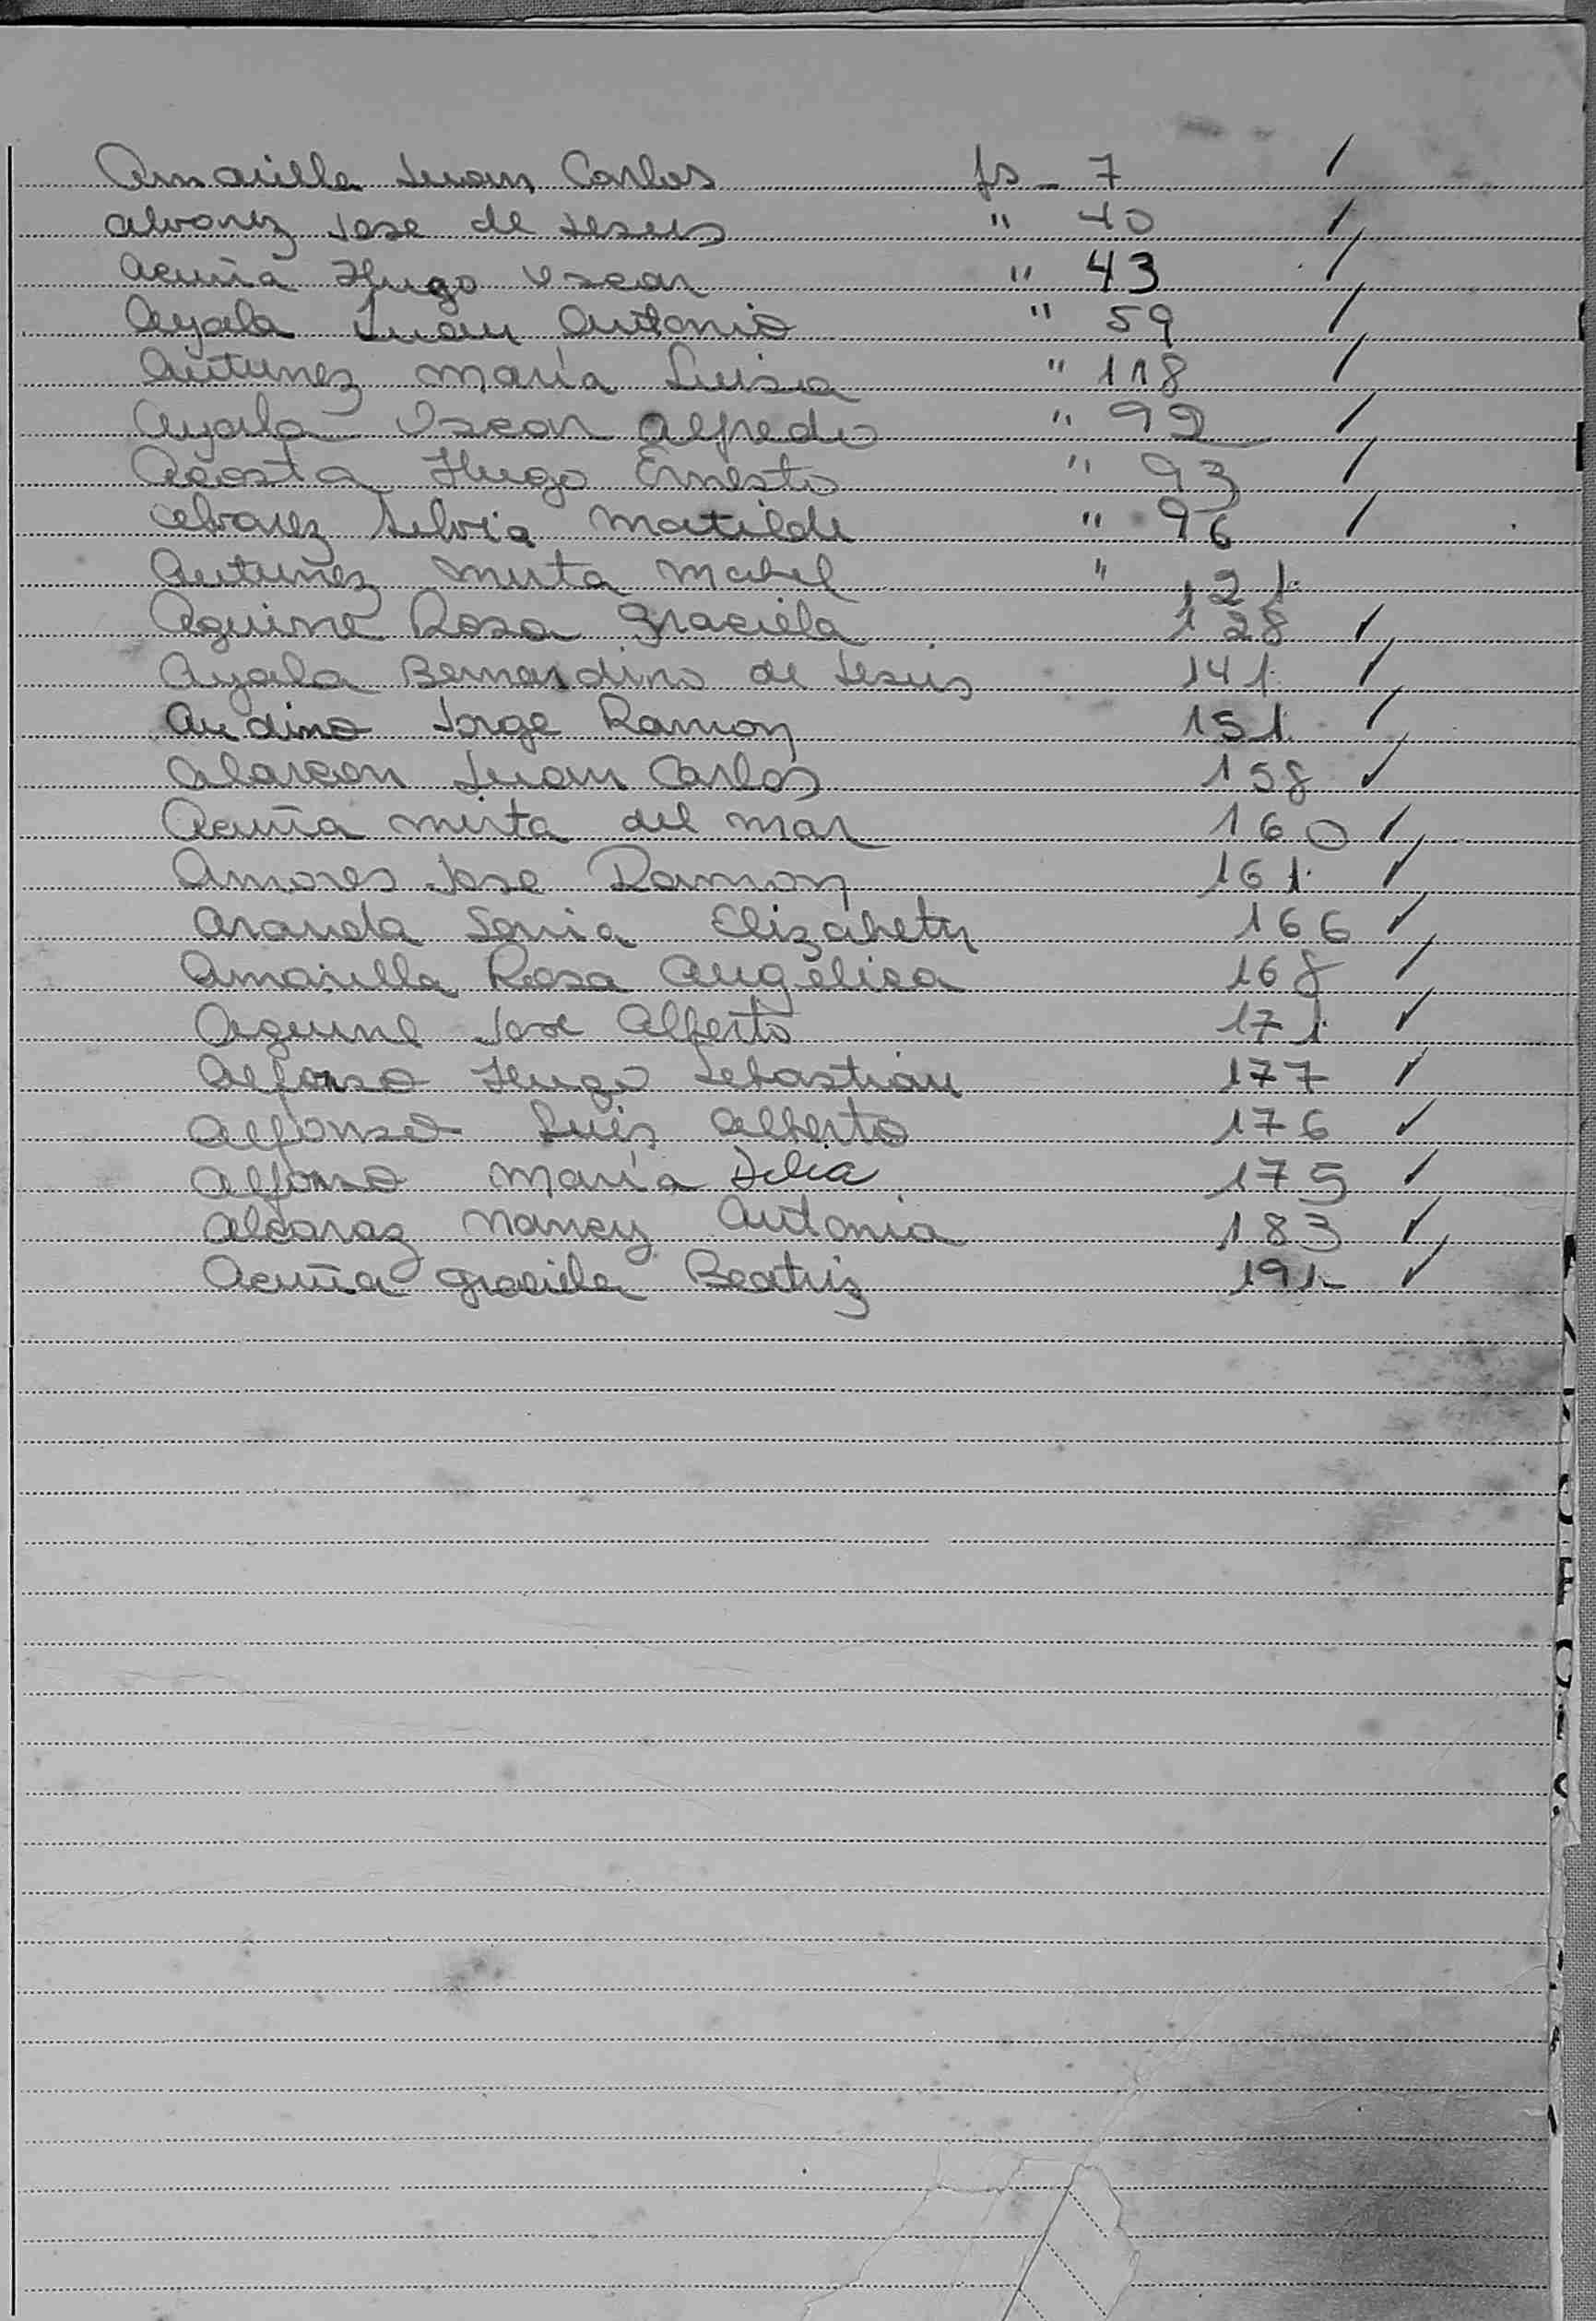 Amarilla Juan Carlos fs - 7 /
Alvarez Jose de Jesus " 40 /
Acuña Hugo Oscar " 43 /
Ayala Juan Antonio " 59 /
Antunez María Luisa " 118 /
Ayala Oscar Alfredo " 92 /
Acosta Hugo Ernesto " 93 /
Alvarez Silvia Matilde " 96 /
Antunez Mirta Mabel " 121.
Aguirre Rosa Graciela 128 ✓
Ayala Bernardino de Jesús 141. ✓
Andino Jorge Ramon 151. ✓
Alarcon Juan Carlos 158 ✓
Acuña Mirta del Mar 160 ✓
Amores Jose Ramon 161. ✓
Aranda Sonia Elizabeth 166 ✓
Amarilla Rosa Angélica 168 ✓
Aguirre Jose Alberto 171. ✓
Alfonso Hugo Sebastian 177 ✓
Alfonso Luis Alberto 176 ✓
Alfonso María Delia 175 ✓
Alcaraz Nancy Antonia 183 ✓
Acuña Graciela Beatriz 191- ✓